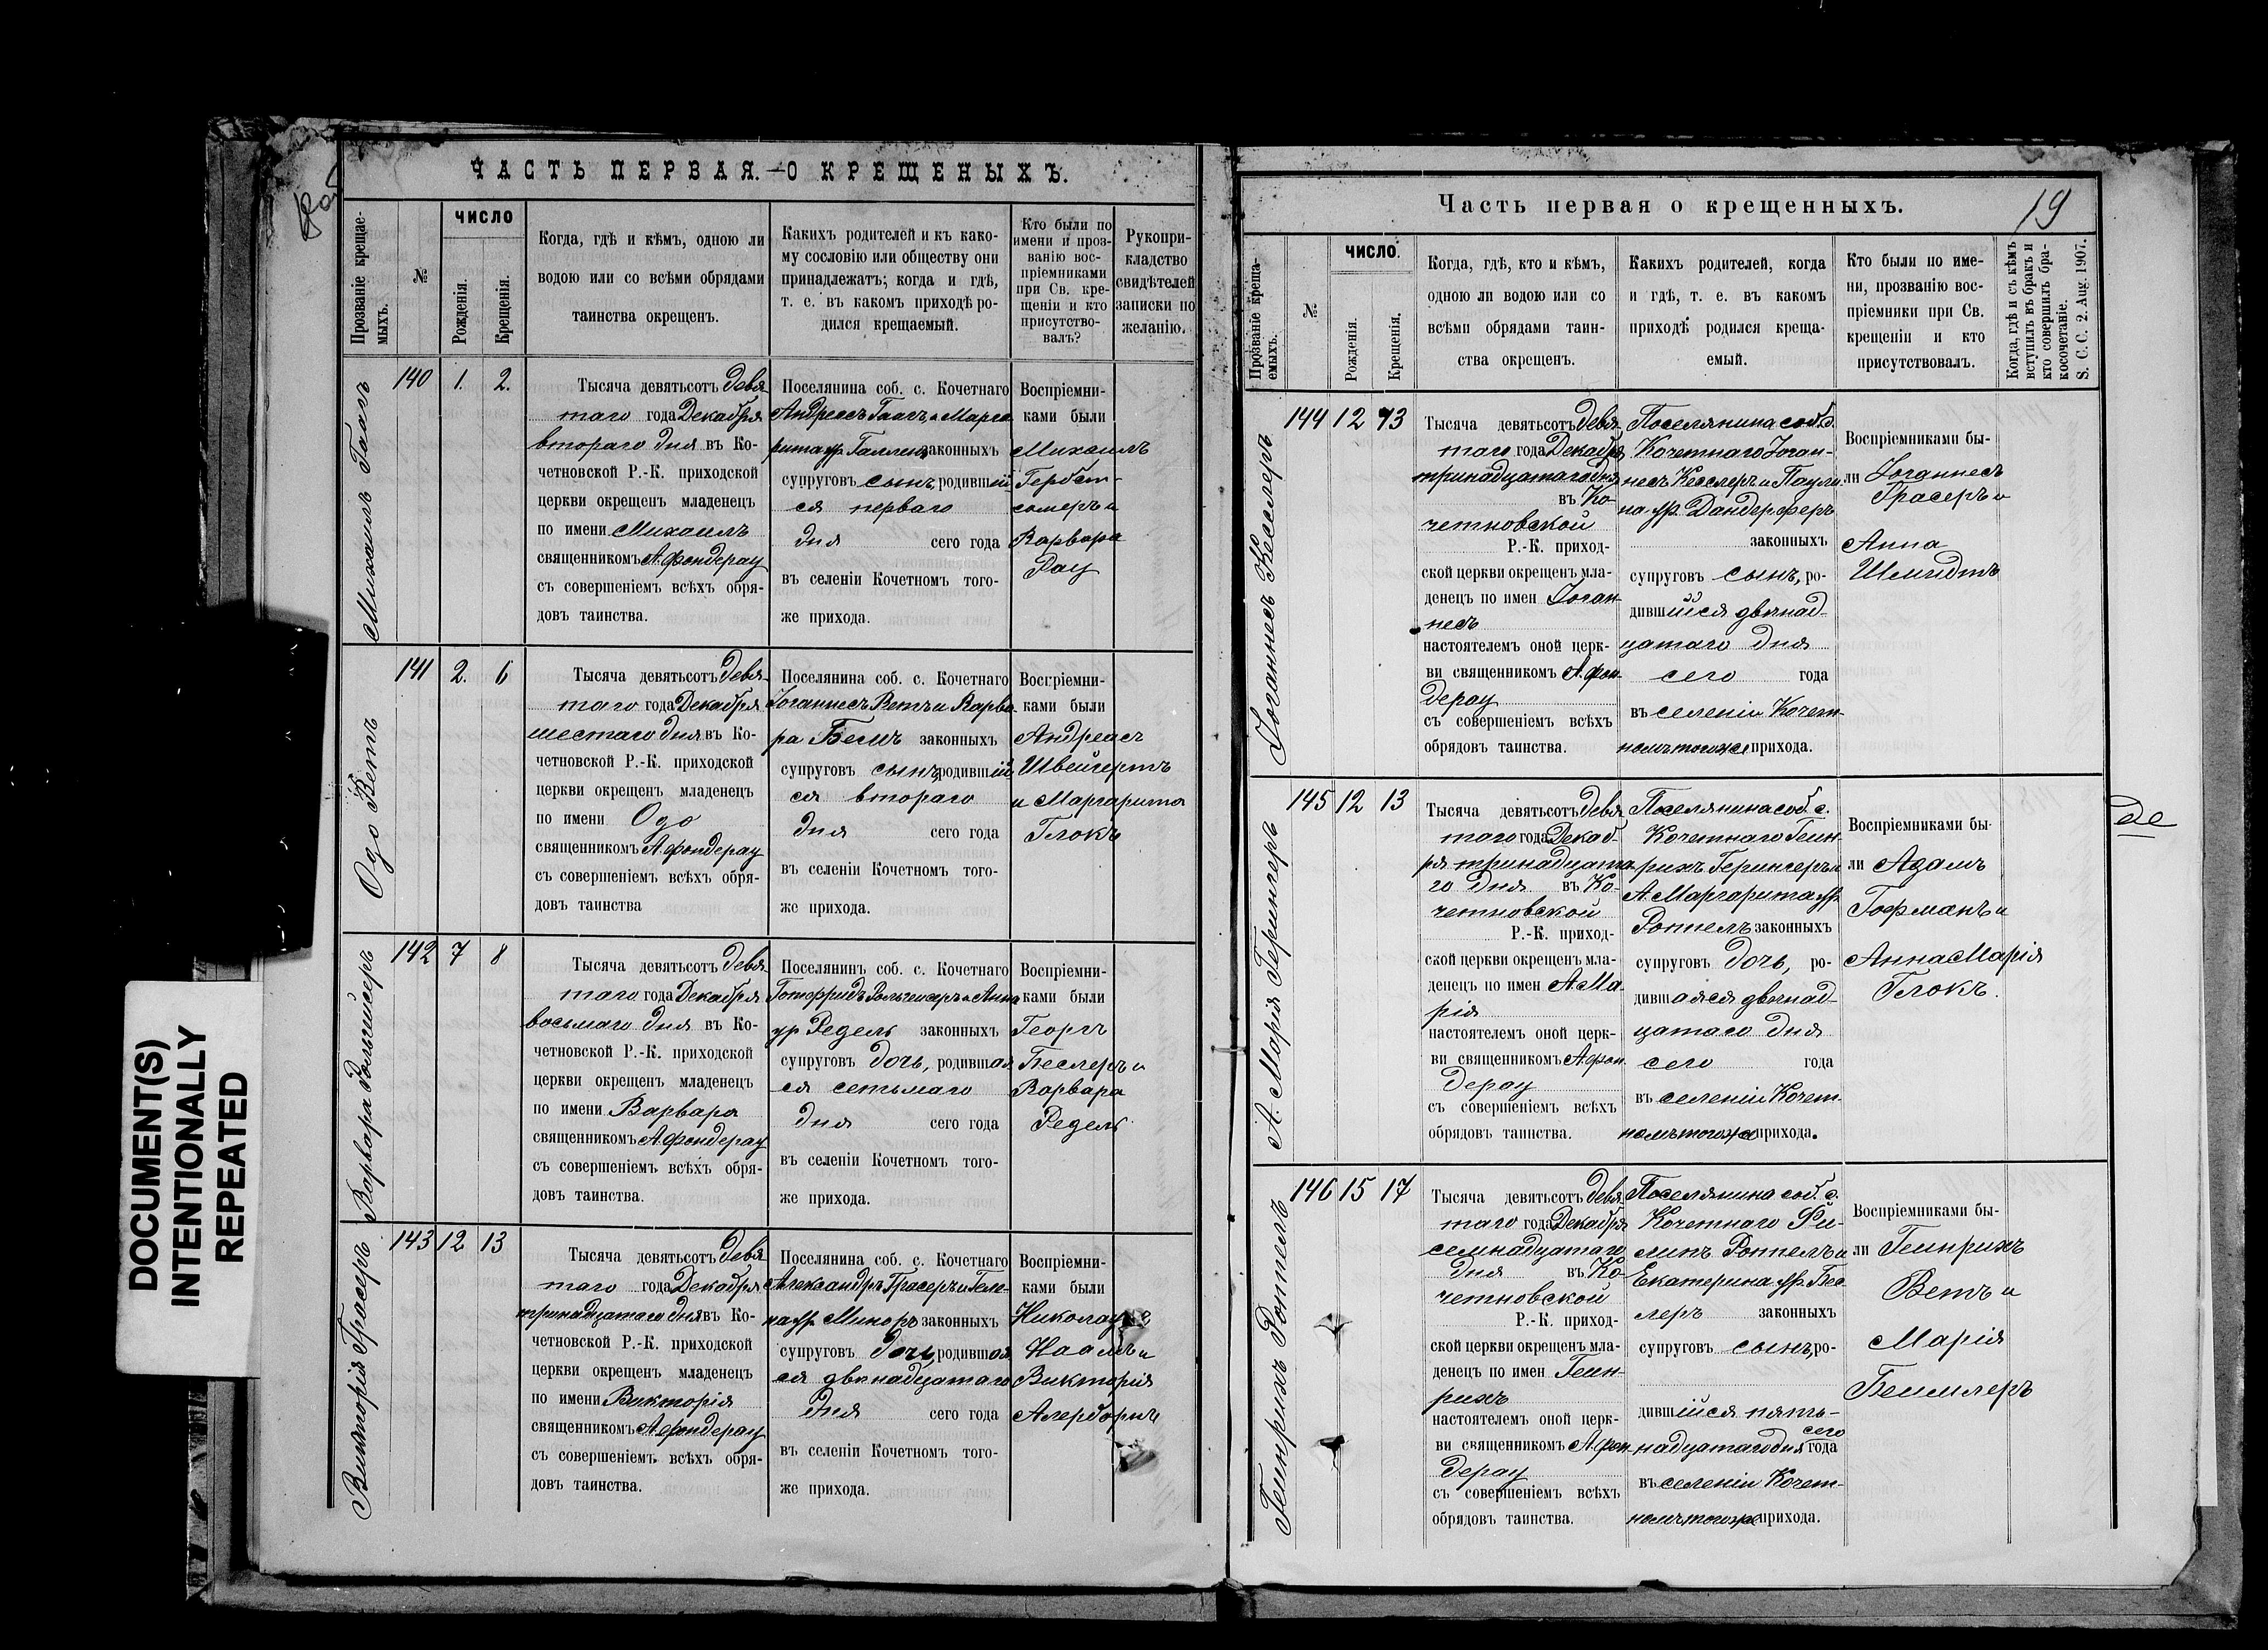 DOCUMENT(S)
INTENTIONALLY
REPEATED
ЧАСТЬ ПЕРВАЯ.—О КРЕЩЕНЫХЪ.
Прозваніе крещае-
мыхъ.
№
ЧИСЛО
Рожденія.
Крещенія.
Когда, гдѣ и кѣмъ, одною ли
водою или со всѣми обрядами
таинства окрещенъ.
Какихъ родителей и къ како-
му сословію или обществу они
принадлежатъ; когда и гдѣ,
т. е. въ какомъ приходѣ ро-
дился крещаемый.
Кто были по
имени и проз-
ванію вос-
пріемниками
при Св. кре-
щеніи и кто
присутство-
валъ?
Рукопри-
кладство
свидѣтелей
записки по
желанію.
Михаилъ Гаагъ
140 1. 2.
Тысяча девятьсотъ девя-
таго года Декабря
втораго дня въ Ко-
четновской Р.-К. приходской
церкви окрещенъ младенецъ
по имени Михаилъ
священникомъ А. фондерау
съ совершеніемъ всѣхъ обря-
довъ таинства.
Поселянина соб. с. Кочетнаго
Андреасъ Гаагъ и Марга-
рита ур. Галлен законныхъ
супруговъ сынъ, родившій-
ся перваго
дня сего года
въ селеніи Кочетномъ того-
же прихода.
Воспріемни-
ками были
Михаилъ
Гербст-
сомеръ и
Варвара
Рау
Одо Ветъ
141 2. 6
Тысяча девятьсотъ девя-
таго года Декабря
шестаго дня въ Ко-
четновской Р.-К. приходской
церкви окрещенъ младенецъ
по имени Одо
священникомъ А. фондерау
съ совершеніемъ всѣхъ обря-
довъ таинства
Поселянина соб. с. Кочетнаго
Іоганнесъ Ветъ и Варва-
ра Бемъ законныхъ
супруговъ сынъ родившій-
ся втораго
дня сего года
въ селеніи Кочетномъ того-
же прихода.
Воспріемни-
ками были
Андреасъ
Швейгертъ
и Маргарита
Глокъ
Варвара Рольгейсеръ
142 7 8
Тысяча девятьсотъ девя-
таго года Декабря
восьмаго дня въ Ко-
четновской Р.-К. приходской
церкви окрещенъ младенецъ
по имени Варвара
священникомъ А фондерау
съ совершеніемъ всѣхъ обря-
довъ таинства.
Поселянинъ соб. с. Кочетнаго
Готфридъ Рольгейсеръ и Анна
ур Редель законныхъ
супруговъ дочь, родившая
ся сетьмаго
дня сего года
въ селеніи Кочетномъ того-
же прихода.
Воспріемни-
ками были
Георгъ
Беслеръ и
Варвара
Редель
Викторія Грасеръ
143 12 13
Тысяча девятьсотъ девя
таго года Декабря
тринадцатаго дня въ Ко-
четновской Р.-К. приходской
церкви окрещенъ младенецъ
по имени Викторія
священникомъ А. фондерау
съ совершеніемъ всѣхъ обря-
довъ таинства.
Поселянина соб. с. Кочетнаго
Александръ Грасеръ и Геле-
на ур Миноръ законныхъ
супруговъ дочь, родившая
ся двѣнадцатаго
дня сего года
въ селеніи Кочетномъ того-
же прихода.
Воспріемни-
ками были
и
Викторія
Часть первая о крещенныхъ.
19
Прозваніе креща-
емыхъ.
№
ЧИСЛО.
Рожденія.
Крещенія.
Когда, гдѣ, кто и кѣмъ,
одною ли водою или со
всѣми обрядами таин-
ства окрещенъ.
Какихъ родителей, когда
и гдѣ, т. е. въ какомъ
приходѣ родился креща-
емый.
Кто были по име-
ни, прозванію вос-
пріемники при Св.
крещеніи и кто
присутствовалъ.
Когда, гдѣ и съ кѣмъ
вступилъ въ бракъ и
кто совершилъ бра-
косочетаніе.
S. C. C. 2. Aug. 1907.
Іоганнесъ Кесслеръ
144 12 13
Тысяча девятьсотъ девя
таго года Декабря
тринадцатаго дня
въ Ко-
четновской
Р.-К. приход-
ской церкви окрещенъ мла-
денецъ по имен Іоган-
несъ
настоятелемъ оной церк-
ви священникомъ А. фон-
дерау
съ совершеніемъ всѣхъ
обрядовъ таинства.
Поселянина соб. с.
Кочетнаго Іоган-
несъ Кесслеръ и Паули-
на ур. Дандерферъ
законныхъ
супруговъ сынъ, ро-
дившійся двѣнад-
цатаго дня
сего года
въ селеніи Кочет-
номъ тогоже прихода.
Воспріемниками бы-
ли Іоганнесъ
Грасеръ и
Анна
Шмидтъ
А. Марія Герингеръ
145 12 13
Тысяча девятьсотъ девя
таго года Декаб-
ря тринадцата-
го дня въ Ко-
четновской
Р.-К. приход-
ской церкви окрещенъ мла-
денецъ по имен А. Ма-
рія
настоятелемъ оной церк-
ви священникомъ А. фон-
дерау
съ совершеніемъ всѣхъ
обрядовъ таинства.
Поселянина соб. с.
Кочетнаго Гейн-
рихъ Герингеръ и
А. Маргарита ур.
Роппелъ законныхъ
супруговъ дочь, ро-
дившаяся двѣнад-
цатаго дня
сего года
въ селеніи Кочет-
номъ тогоже прихода.
Воспріемниками бы-
ли Адамъ
Гофманъ и
Анна Марія
Глокъ.
де
Гейнрихъ Роппелъ
146 15 17
Тысяча девятьсотъ девя
таго года Декабря
семнадцатаго
дня въ Ко-
четновской
Р.-К. приход-
ской церкви окрещенъ мла-
денецъ по имен Гейн-
рихъ
настоятелемъ оной церк-
ви священникомъ А. фон-
дерау
съ совершеніемъ всѣхъ
обрядовъ таинства.
Поселянина соб. с.
Кочетнаго Фи-
липъ Роппелъ и
Екатерина ур. Бес-
леръ законныхъ
супруговъ сынъ, ро-
дившійся пять-
надцатаго дня сего года
въ селеніи Кочет-
номъ тогоже прихода.
Воспріемниками бы-
ли Гейнрихъ
Ветъ и
Марія
Беймлеръ